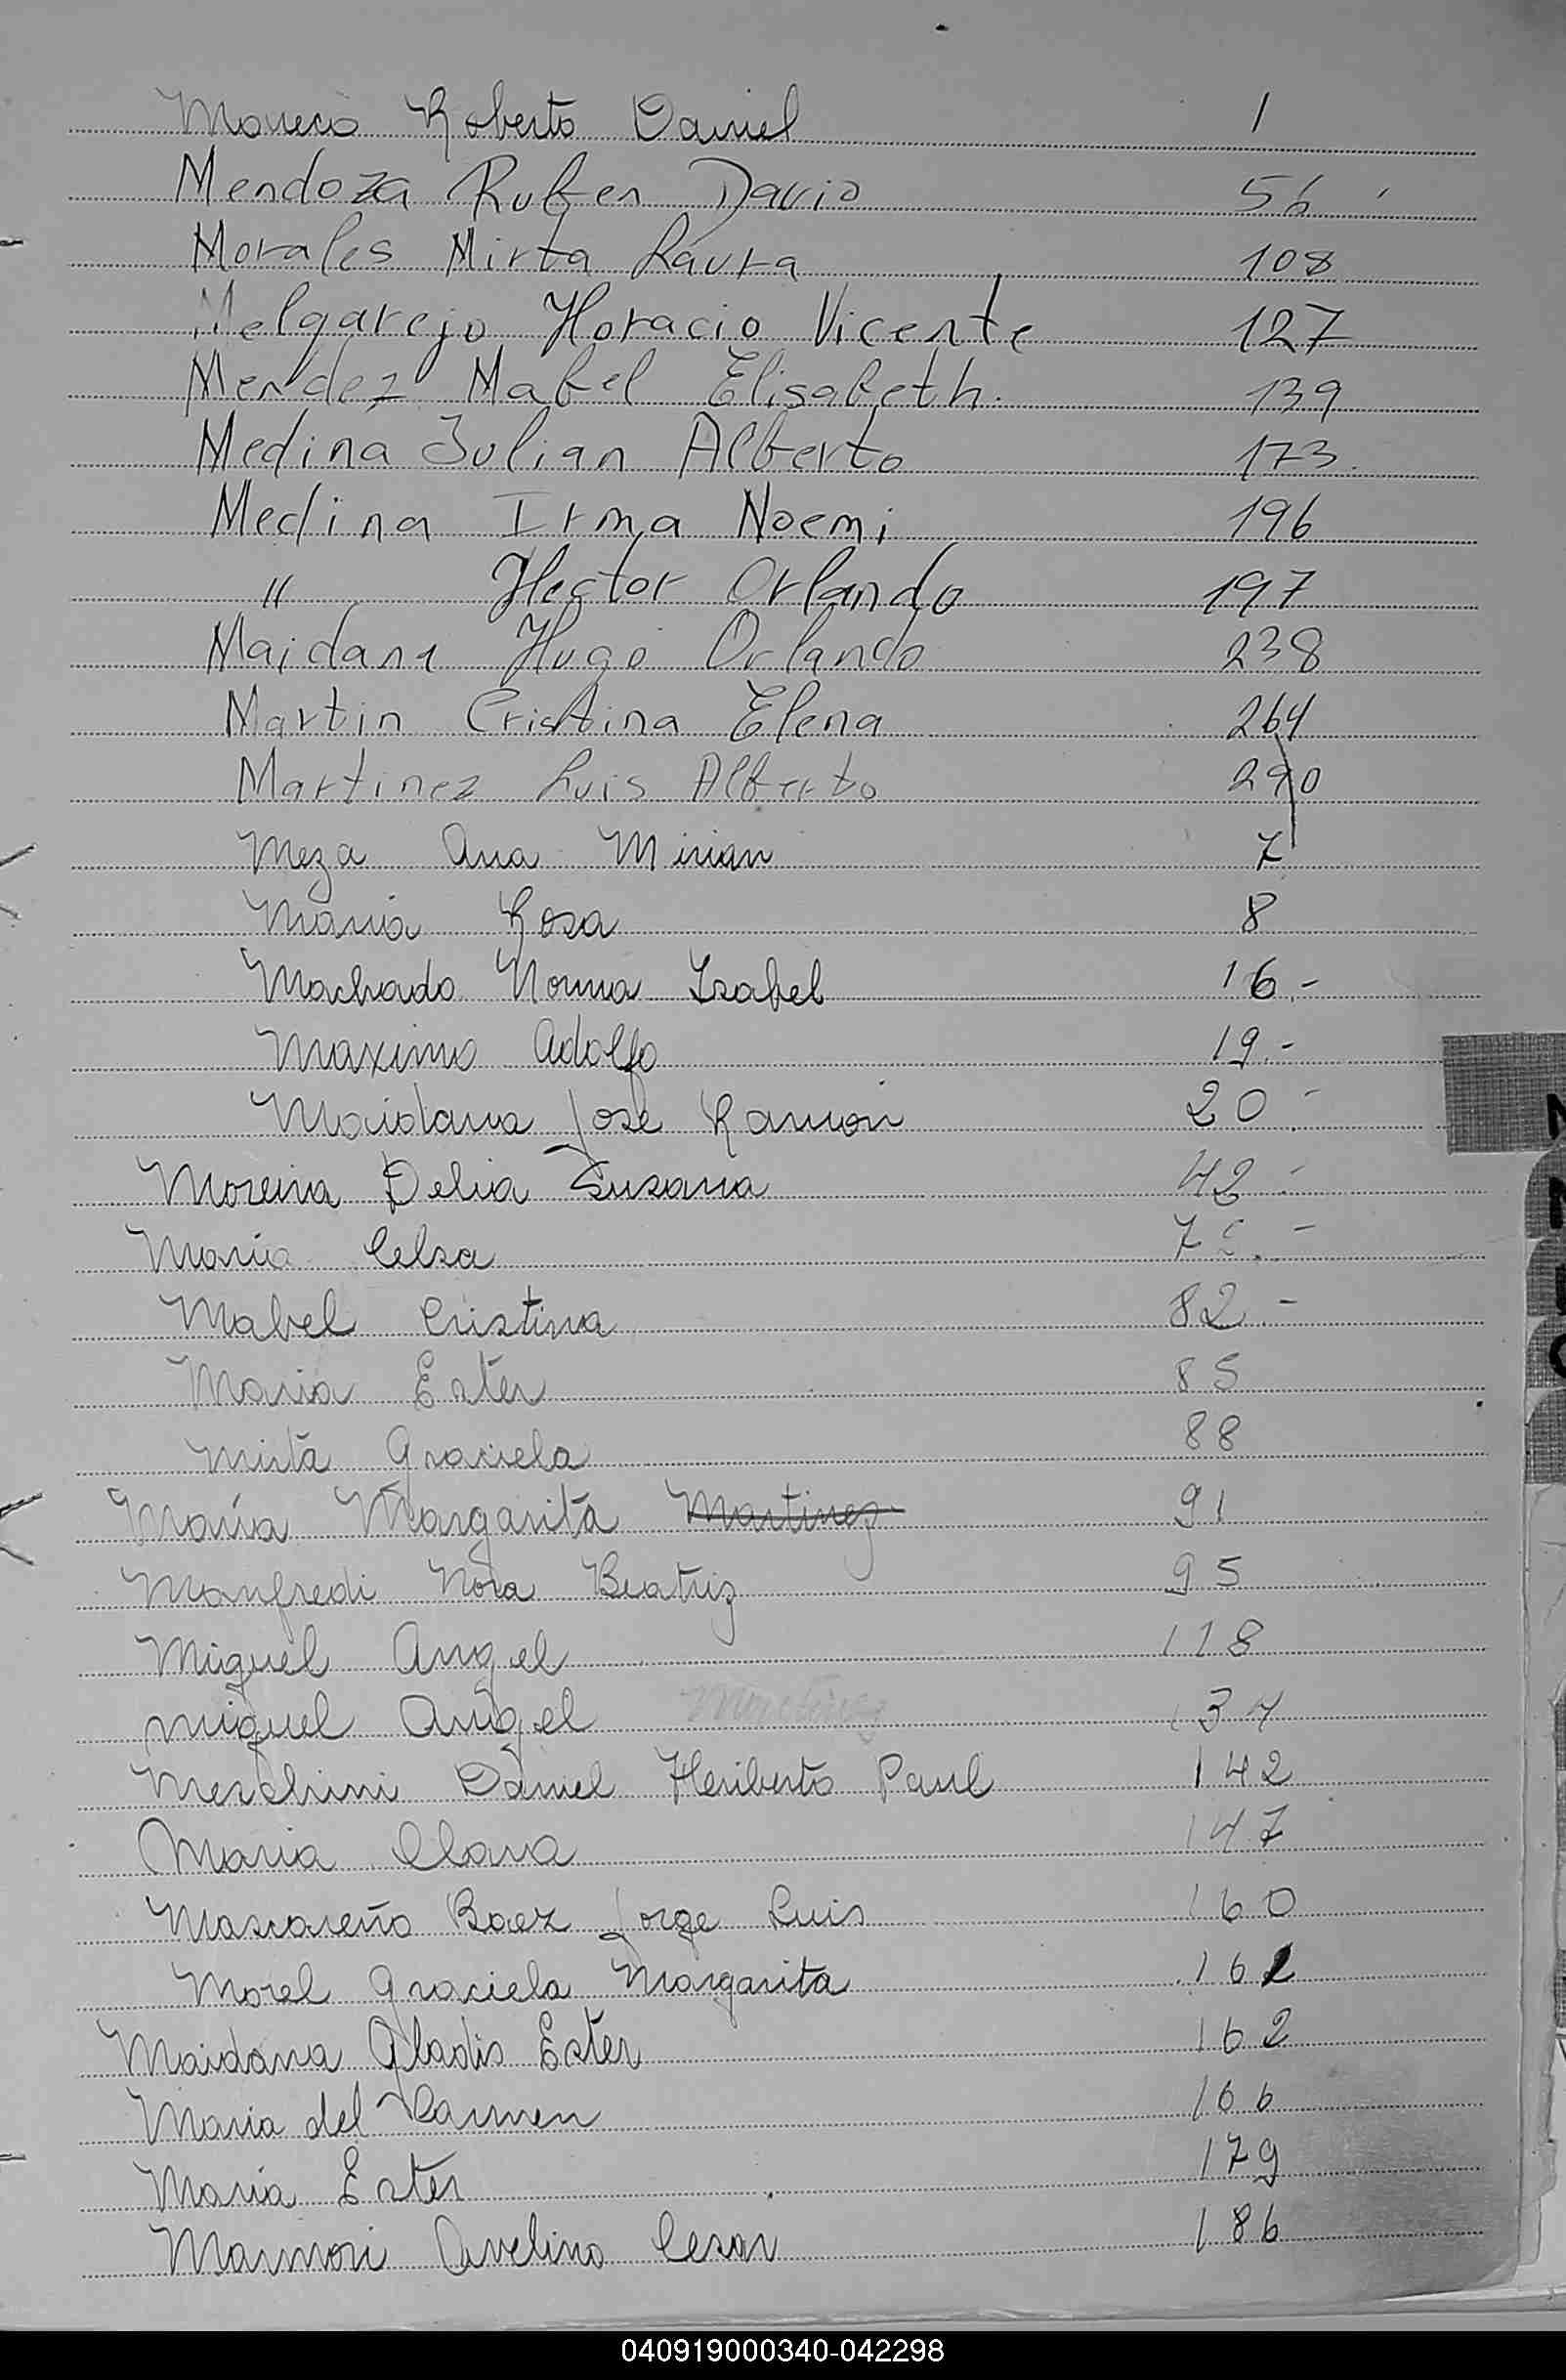 Roberto Daniel 1
Mendoza Ruben Dario 56
Morales Mirta Laura 108
Melgarejo Horacio Vicente 127
Mendez Mabel Elisabeth. 139
Medina Julian Alberto 173.
Medina Irma Noemi 196
" Hector Orlando 197
Maidana Hugo Orlando 238
Martin Cristina Elena 264
Martinez Luis Alberto 290
Meza Ana Mirian 7
Maria Rosa 8
Machado Norma Isabel 16.-
Maximo Adolfo 19.-
Maidana Jose Ramon 20.-
Moreira Delia Susana 42.-
Maria Celsa
Mabel Cristina 82.-
Maria Ester 85
Mirta Graciela 88
Maria Margarita Martinez 91
Manfredi Nora Beatriz 95
Miguel Angel 118
Miguel Angel Martinez 134
Meschini Daniel Heriberto Paul 142
Maria Clara 147
Mascareño Baez Jorge Luis 160
Morel Graciela Margarita 161
Maidana Gladis Ester 162
Maria del Carmen 166
Maria Ester 179
Marmori Avelino Cesar 186
040919000340-042298